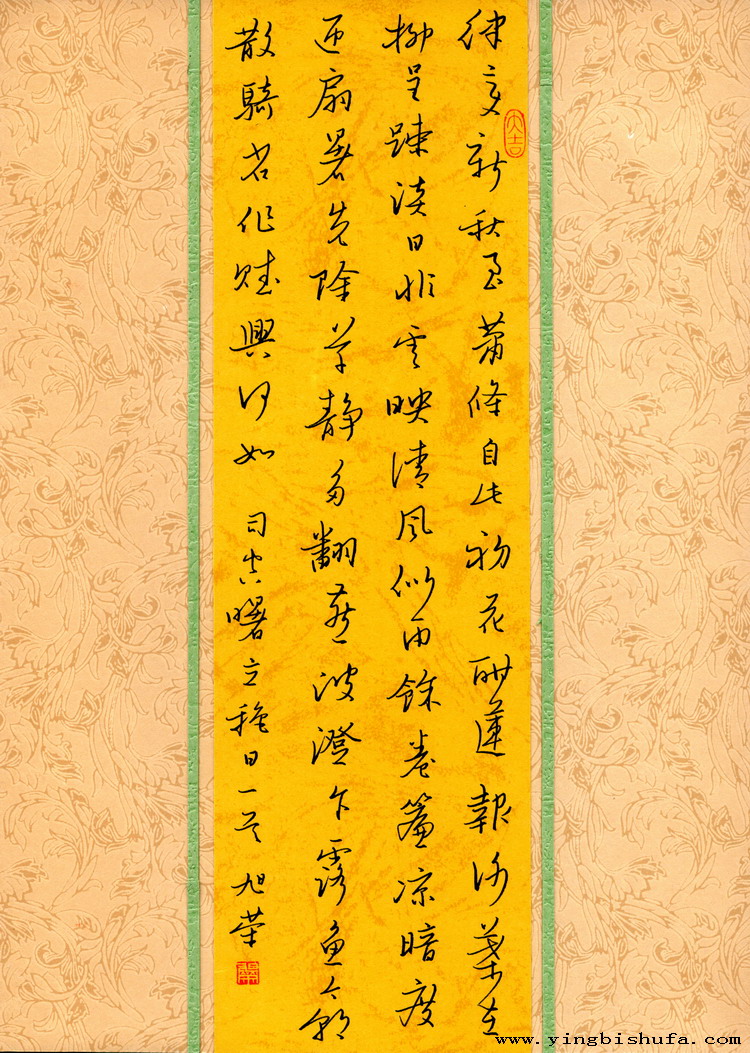 律变新秋至萧條自此初花酣蓮報谢葉在
柳呈踈淡日非雲映清風似雨餘卷簾凉暗度
迎扇暑先除草静多翻燕波澄乍露魚今朝
散騎省作賦興何如 司空曙立秋日一首 旭荣
大吉
www.yingbishufa.com